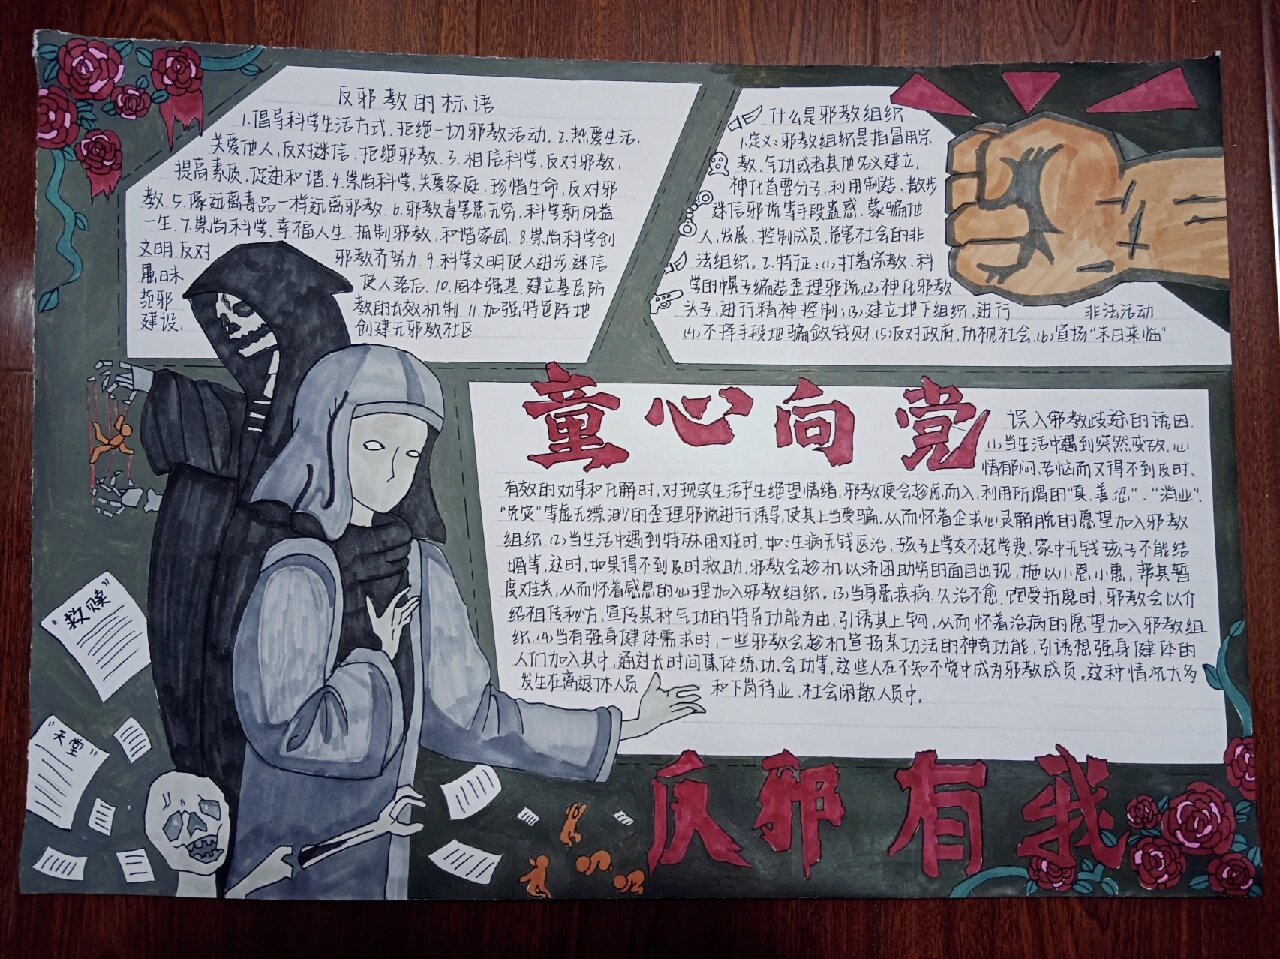 反邪教的标语
1.倡导科学生活方式,拒绝一切邪教活动.2.热爱生活,
关爱他人,反对迷信,拒绝邪教.3.相信科学,反对邪教,
提高素质,促进和谐.4.崇尚科学,关爱家庭,珍惜生命,反对邪
教.5.像远离毒品一样远离邪教.6.邪教毒害患无穷,科学新风益
一生.7.崇尚科学,幸福人生,抵制邪教,和谐家园.8.崇尚科学创
文明,反对 邪教齐努力.9.科学文明使人进步,迷信
愚昧 使人落后.10.固本强基,建立基层防
范邪 教的长效机制.11.加强特色阵地
建设, 创建无邪教社区
什么是邪教组织
1.定义:邪教组织是指冒用宗
教、气功或者其他名义建立,
神化首要分子,利用制造、散步
迷信邪说等手段蛊惑、蒙骗他
人,发展、控制成员,危害社会的非
法组织.2.特征:(1)打着宗教、科
学的幌子编造歪理邪说;(2)神化邪教
头子,进行精神控制;(3)建立地下组织,进行 非法活动
(4)不择手段地骗敛钱财.(5)反对政府,仇视社会.(6)宣扬"末日来临"
童心向党
误入邪教歧途的诱因
(1)当生活中遇到突然变故,心
情郁闷、苦恼而又得不到及时、
有效的劝导和化解时,对现实生活产生绝望情绪,邪教便会趁虚而入,利用所谓的"真、善、忍"、"消业"、
"免灾"等虚无缥缈的歪理邪说进行诱导,使其上当受骗,从而怀着企求心灵解脱的愿望加入邪教
组织.(2)当生活中遇到特殊困难时,如:生病无钱医治、孩子上学交不起学费、家中无钱孩子不能结
婚等,这时,如果得不到及时救助,邪教会趁机以济困助贫的面目出现,施以小恩小惠,帮其暂
度难关,从而怀着感恩的心理加入邪教组织.(3)当身患疾病,久治不愈,饱受折磨时,邪教会以介
绍祖传秘方、宣传某种气功的特异功能为由,引诱其上钩,从而怀着治病的愿望加入邪教组
织.(4)当有强身健体需求时,一些邪教会趁机宣扬某功法的神奇功能,引诱想强身健体的
人们加入其中,通过长时间集体练功、会功等,这些人在不知不觉中成为邪教成员,这种情况大多
发生在离退休人员 和下岗待业、社会闲散人员中.
"救赎"
"天堂"
反邪有我